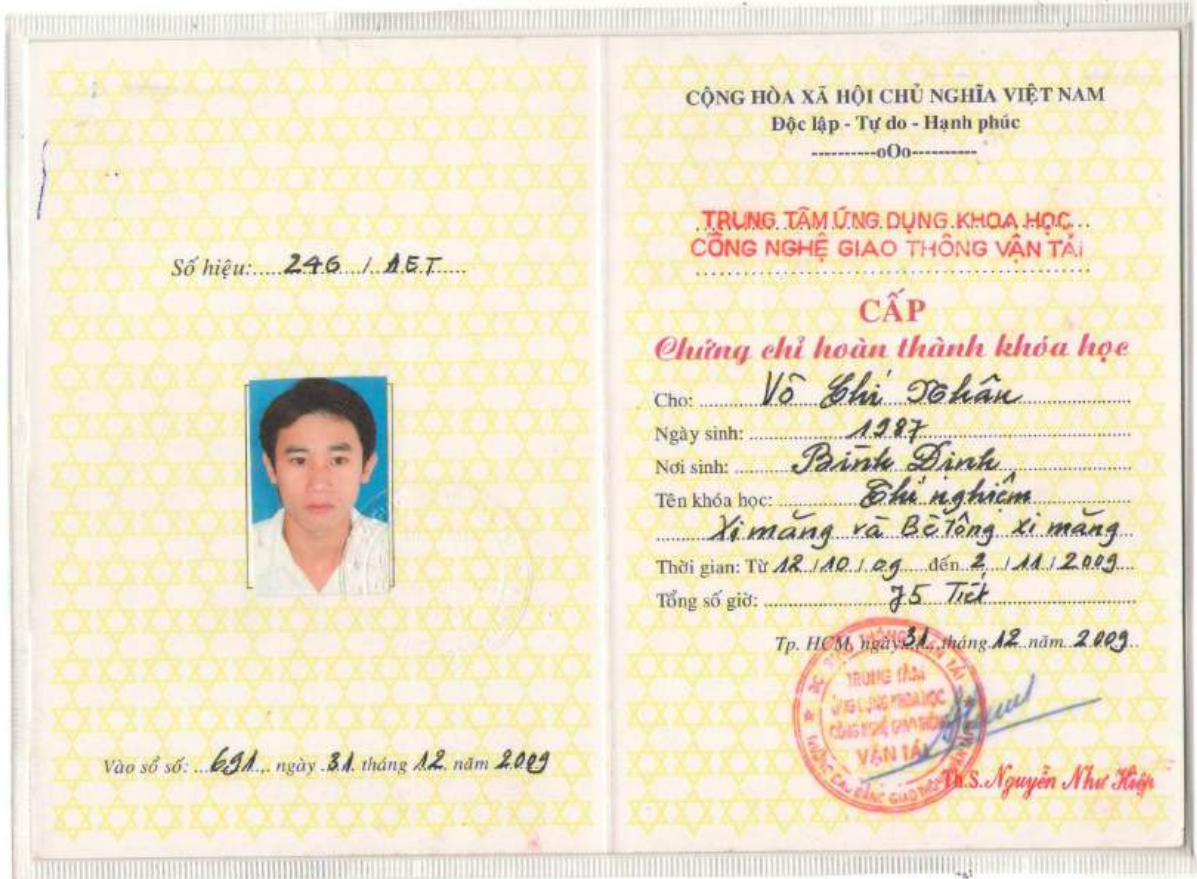 Số hiệu: 246 / AET
Vào sổ số: 691 ngày 31 tháng 12 năm 2009
CỘNG HÒA XÃ HỘI CHỦ NGHĨA VIỆT NAM
Độc lập - Tự do - Hạnh phúc
----------oOo----------
TRUNG TÂM ỨNG DỤNG KHOA HỌC
CÔNG NGHỆ GIAO THÔNG VẬN TẢI
CẤP
Chứng chỉ hoàn thành khóa học
Cho: Võ Chí Nhân
Ngày sinh: 1987
Nơi sinh: Bình Định
Tên khóa học: Thí nghiệm
Xi măng và Bê Tông xi măng
Thời gian: Từ 12 / 10 / 09 đến 2 / 11 / 2009
Tổng số giờ: 75 Tiết
Tp. HCM, ngày 31 tháng 12 năm 2009
TRUNG TÂM
ỨNG DỤNG KHOA HỌC
CÔNG NGHỆ GIAO THÔNG
VẬN TẢI
Th.S. Nguyễn Như Hiệp